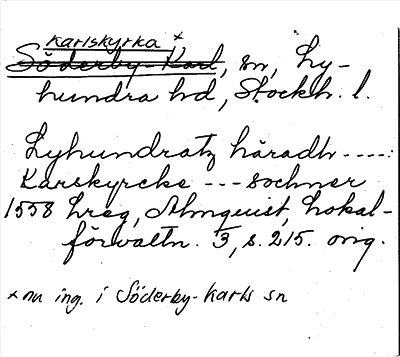 Karlskyrka x)
Söderby-Karl, sn, Ly-
hundra hd, Stockh. l.
Lyhundratz häradh ----:
Karskyrcke --- sochner
1558 Lreg, Almquist, Lokal-
förvaltn. 3, s. 215. orig.
x nu ing. i Söderby-Karls sn